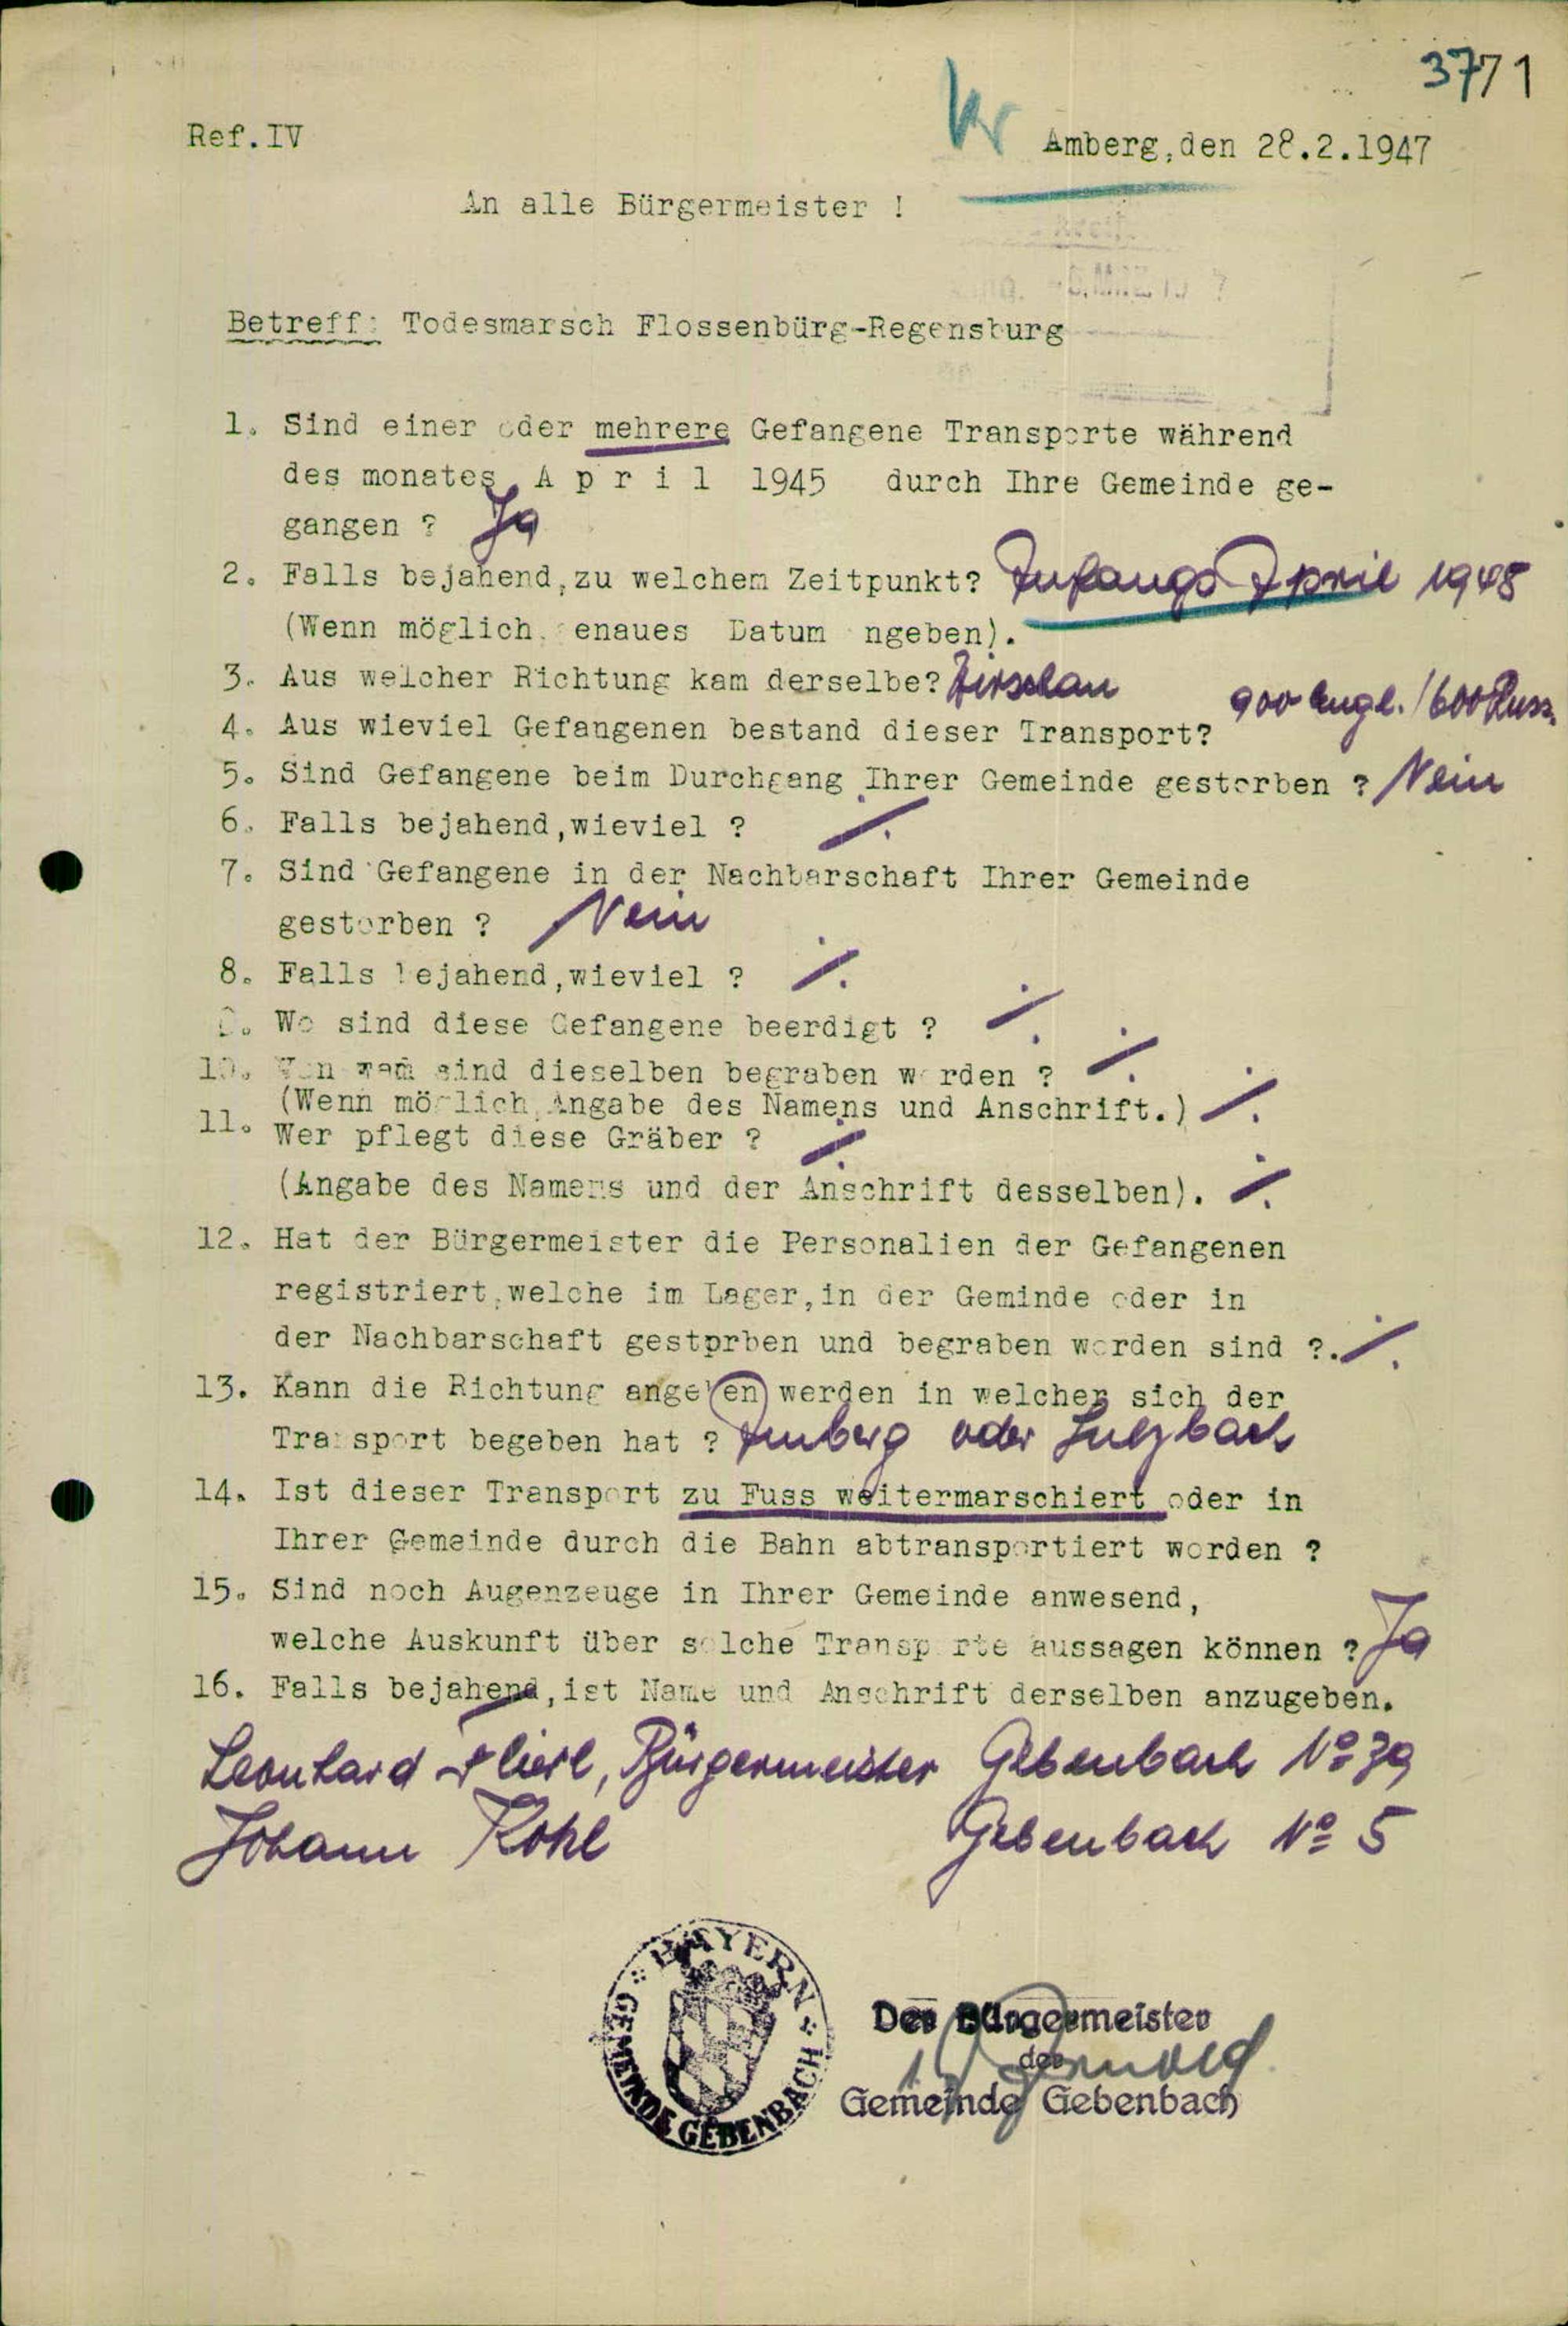 3771
Ref.IV
Kr
Amberg,den 28.2.1947
An alle Bürgermeister !
Betreff: Todesmarsch Flossenbürg-Regensburg
1. Sind einer oder mehrere Gefangene Transporte während
des monates A p r i l 1945 durch Ihre Gemeinde ge-
gangen ? Ja
2. Falls bejahend,zu welchem Zeitpunkt? Anfangs April 1945
(Wenn möglich genaues Datum angeben).
3. Aus welcher Richtung kam derselbe? Hirschau
900 Engl. / 600 Russ.
4. Aus wieviel Gefangenen bestand dieser Transport?
5. Sind Gefangene beim Durchgang Ihrer Gemeinde gestorben ? Nein
6. Falls bejahend,wieviel ? ·/.
7. Sind Gefangene in der Nachbarschaft Ihrer Gemeinde
gestorben ? Nein
8. Falls bejahend,wieviel ? ·/.
9. Wo sind diese Gefangene beerdigt ? ·/.
10. Von wem sind dieselben begraben worden ? ·/.
(Wenn möglich Angabe des Namens und Anschrift.) ·/.
11. Wer pflegt diese Gräber ? ·/.
(Angabe des Namens und der Anschrift desselben). ·/.
12. Hat der Bürgermeister die Personalien der Gefangenen
registriert,welche im Lager,in der Geminde oder in
der Nachbarschaft gestprben und begraben worden sind ?. ·/.
13. Kann die Richtung angeben werden in welcher sich der
Transport begeben hat ? Amberg oder Sulzbach
14. Ist dieser Transport zu Fuss weitermarschiert oder in
Ihrer Gemeinde durch die Bahn abtransportiert worden ?
15. Sind noch Augenzeuge in Ihrer Gemeinde anwesend,
welche Auskunft über solche Transporte aussagen können ? Ja
16. Falls bejahend,ist Name und Anschrift derselben anzugeben.
Leonhard Flierl, Bürgermeister Gebenbach No 39
Johann Kohl Gebenbach No 5
BAYERN
GEMEINDE GEBENBACH
Der Bürgermeister
der
Gemeinde Gebenbach